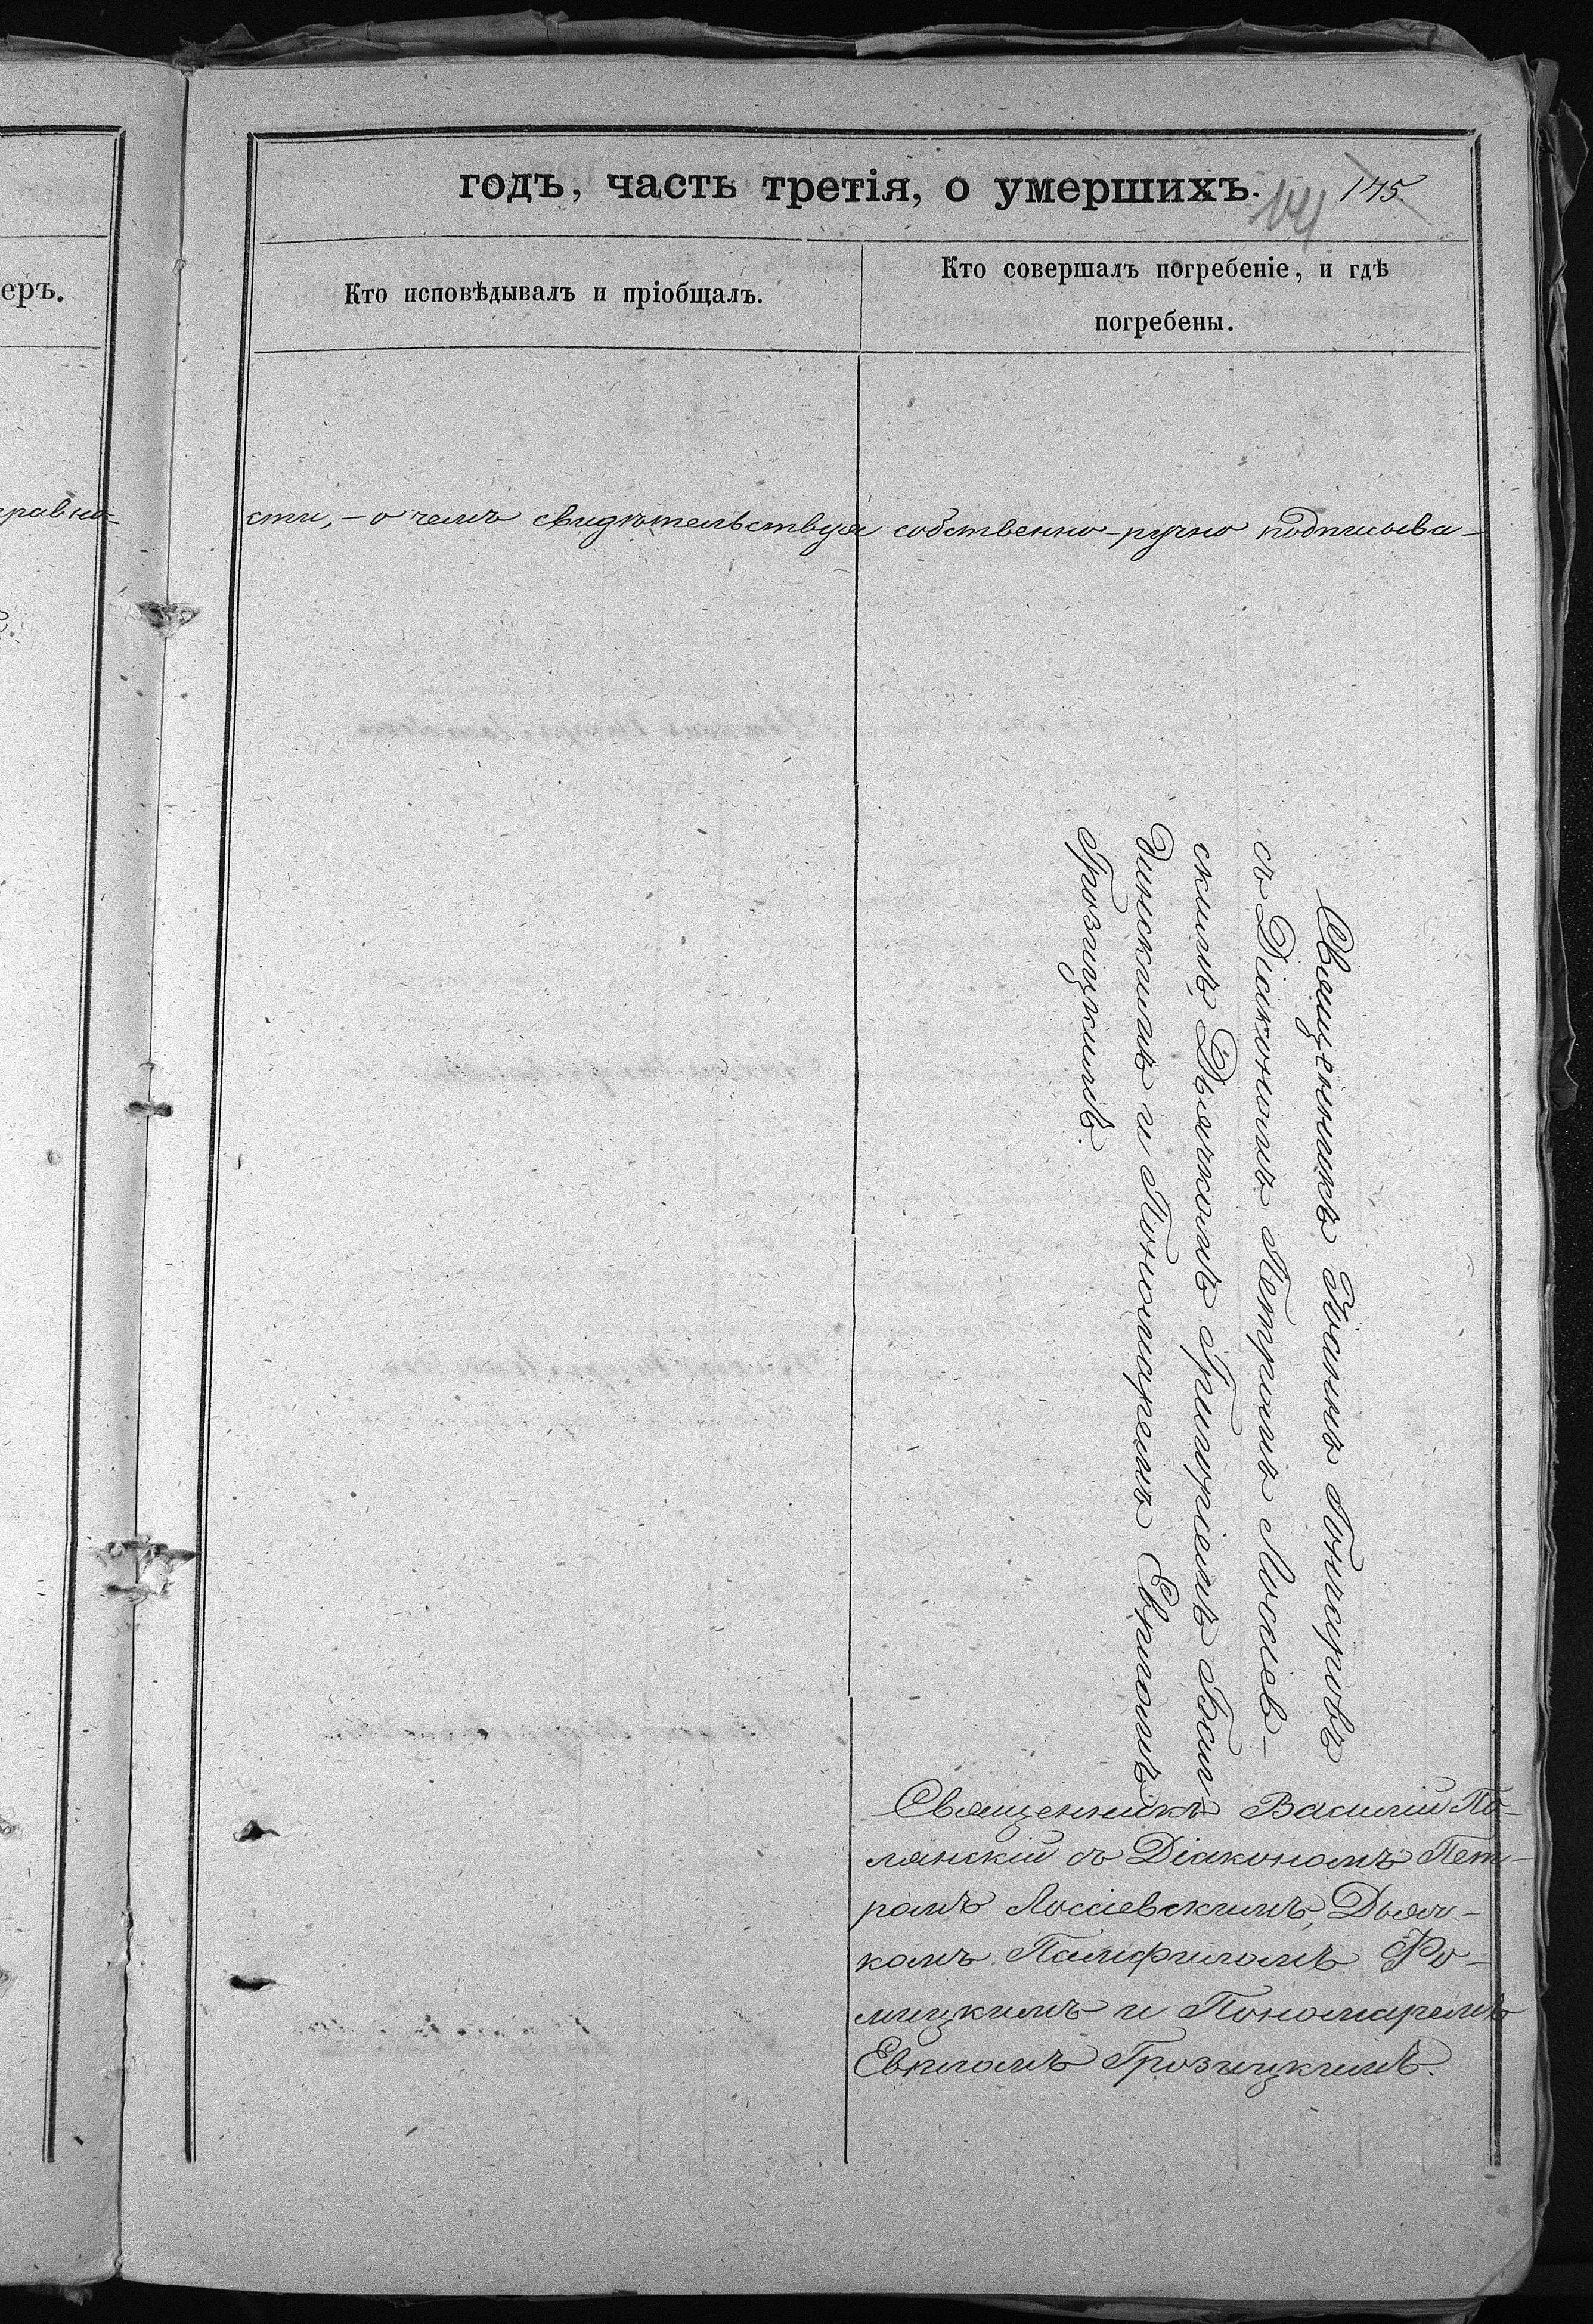 годъ, часть третія, о умершихъ.
141
145.
еръ.
Кто исповѣдывалъ и пріобщалъ.
Кто совершалъ погребеніе, и гдѣ
погребены.
правно-
сти, - о чемъ свидѣтельствуя собственно-ручно подписыва-
Священникъ Іоаннъ Гончаровъ
съ Діакономъ Петромъ Лоссіев-
скимъ, Дьячкомъ Григоріемъ
и Пономаремъ Евпломъ
Грозицкимъ.
Священникъ Василій По-
лянскій съ Діакономъ Пет-
ромъ Лоссіевскимъ, Дьяч-
комъ Памфиломъ Фо-
мицкимъ и Пономаремъ
Евпломъ Грозицкимъ.